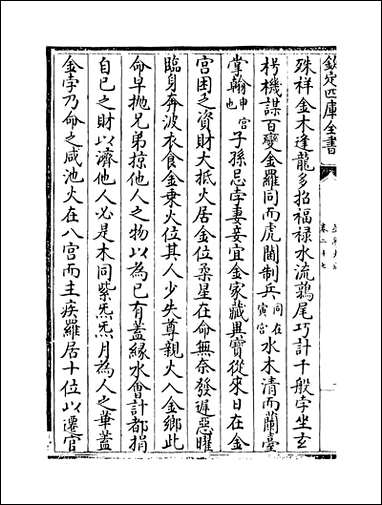 欽定四庫全書
殊祥金木逢龍多招福祿水流鶉尾巧計千般孛坐玄
枵機謀百變金羅同而虎闈制兵同在寅宮水木清而蘭臺
掌翰申宮也子孫忌孛妻妾宜金家藏異寶從來日在金
宮困乏資財大抵火居金位桑星在命無奈發遲惡曜
臨身奔波衣食金乗火位其人少失尊親火入金鄉此
命早拋兄弟掠他人之物以為已有蓋緣水會計都捐
自已之財以濟他人必是木同紫炁炁月為人之華蓋
金孛乃命之咸池火在八宮而主疾羅居十位以遷官